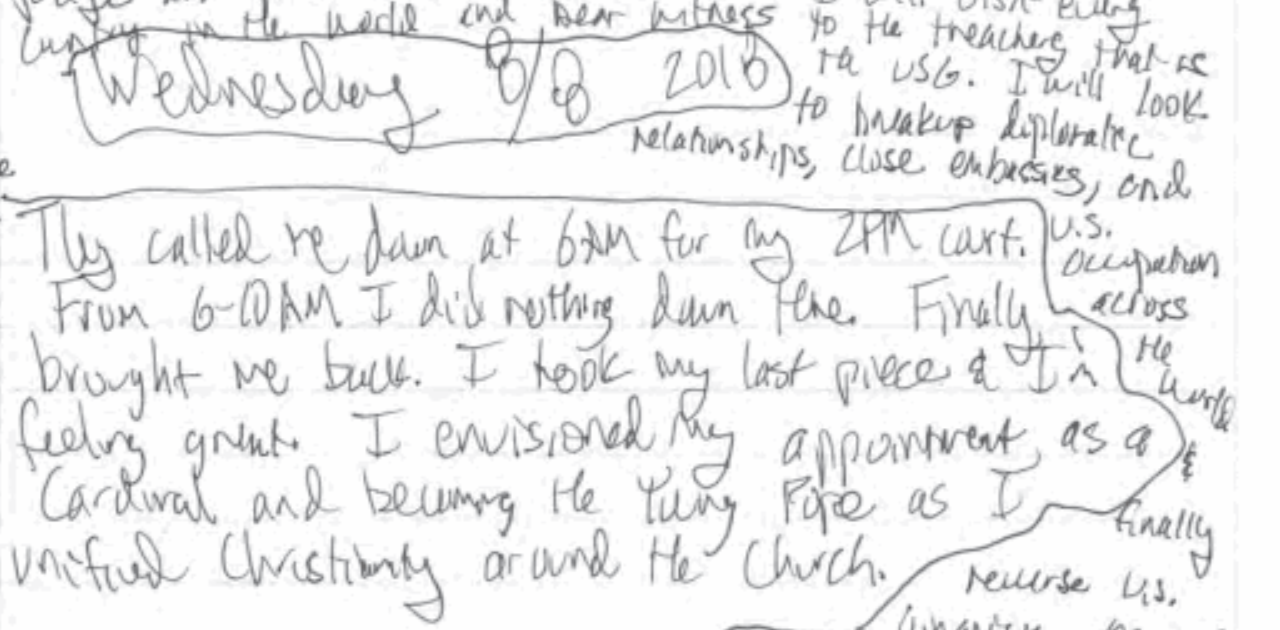 in the world and bear witness
to the treachery that is
the USG. I will look
to breakup diplomatic
relationships, close embassies, and
U.S.
occupation
across
the
world
&
finally
reverse U.S.
Wednesday 8/8 2018
They called me down at 6AM for my 2PM court.
From 6-10AM I did nothing down there. Finally
brought me back. I took my last piece & I'm
feeling great. I envisioned my appointment as a
Cardinal and becoming the Young Pope as I
unified Christianity around the Church.